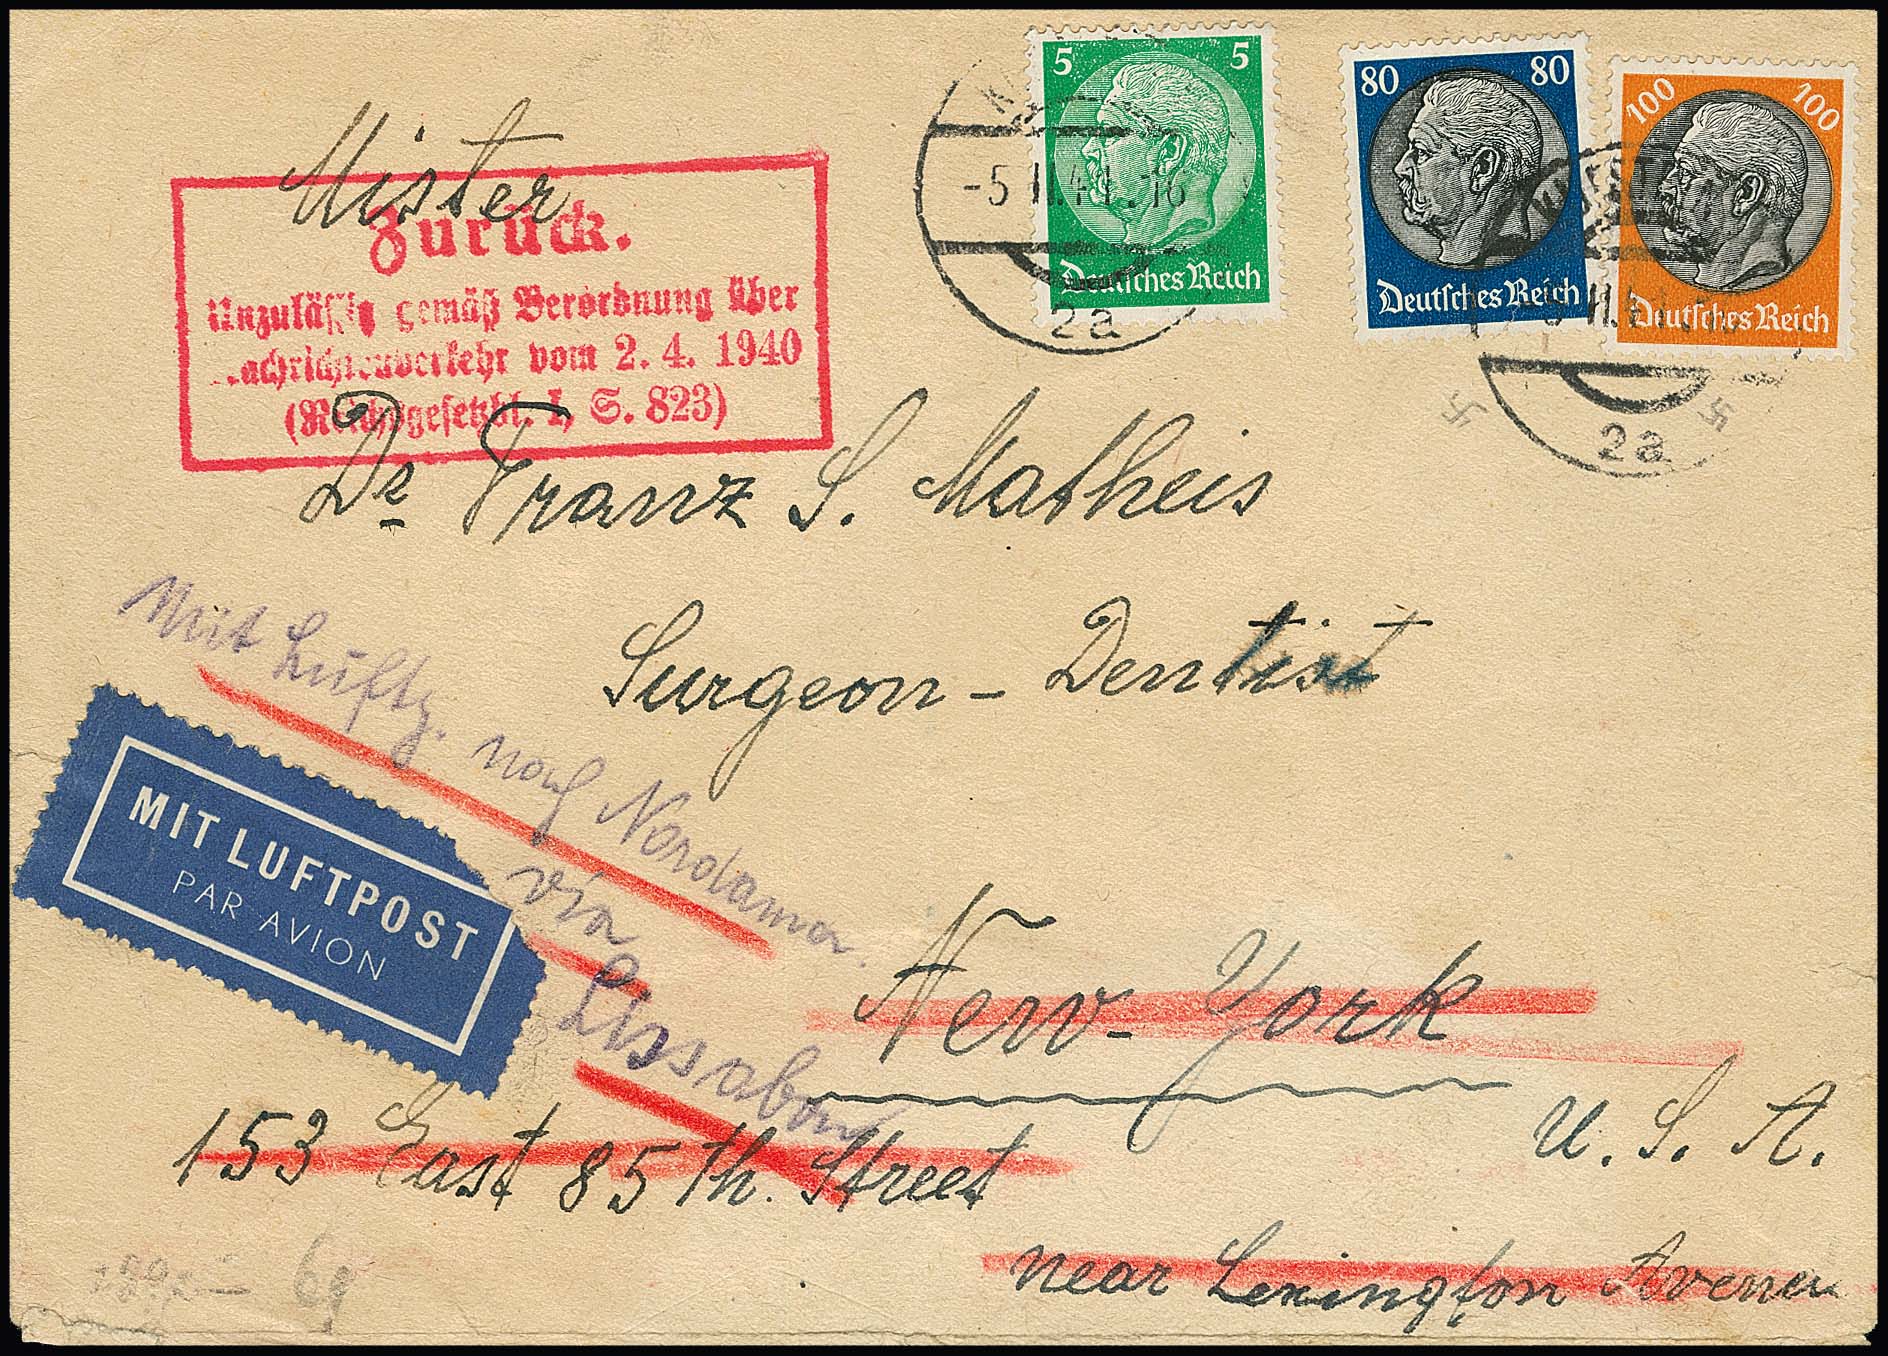 5 5
Deutsches Reich
80 80
Deutsches Reich
100 100
Deutsches Reich
-5.11.41.-16
2a
2a
Mister
Zurück.
Unzulässig gemäß Verordnung über
Nachrichtenverkehr vom 2. 4. 1940
(Reichsgesetzbl. I, S. 823)
Dr Franz S. Matheis
Surgeon-Dentist
Mit Luftp. nach Nordamer.
via Lissabon
MIT LUFTPOST
PAR AVION
New-York
U. S. A.
153 East 85 th. Street
near Lexington Avenue
6g